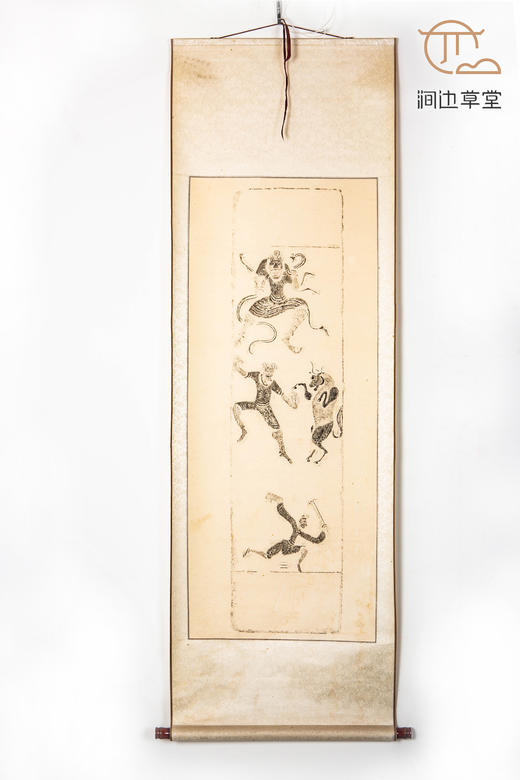 涧边草堂